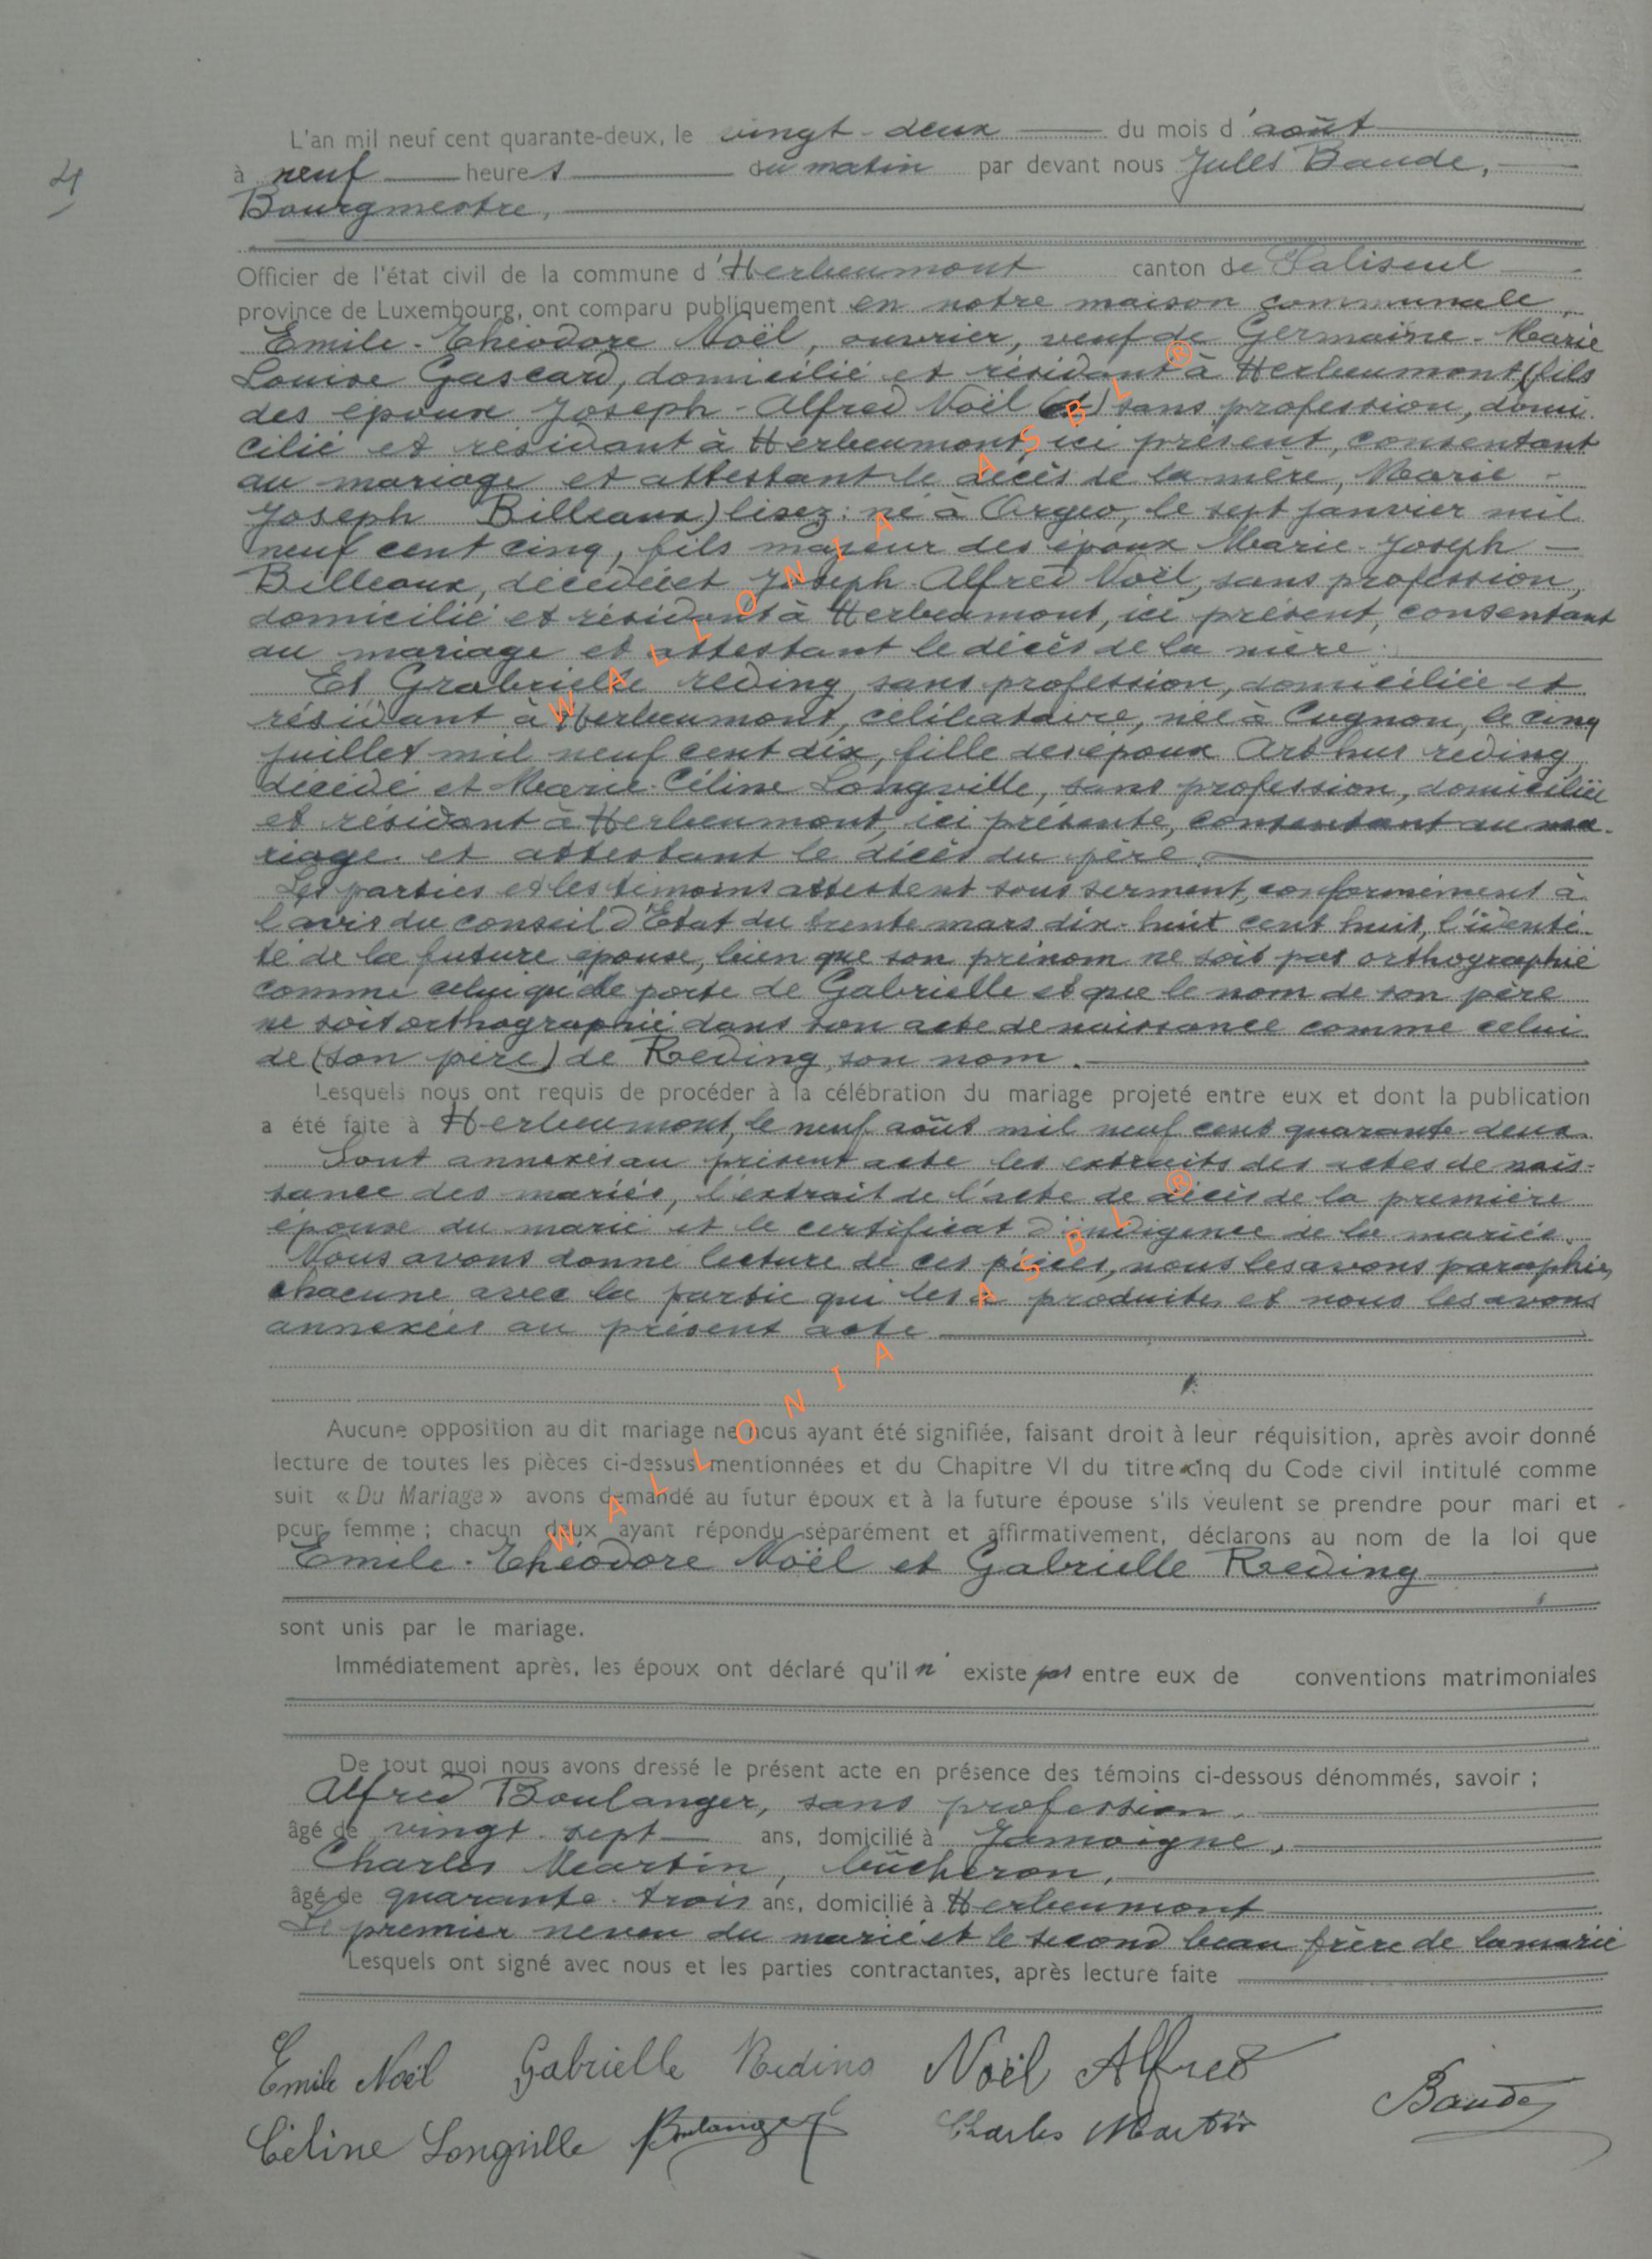 4
L'an mil neuf cent quarante-deux, le vingt-deux du mois d'août
à neuf heures du matin par devant nous Jules Baude,
Bourgmestre,
Officier de l'état civil de la commune d'Herbeumont canton de Paliseul
province de Luxembourg, ont comparu publiquement en notre maison communale,
Emile-Théodore Noël, ouvrier, veuf de Germaine-Marie
Louise Gascard, domicilié et résidant à Herbeumont (fils
des époux Joseph-Alfred Noël sans profession, domi-
cilié et résidant à Herbeumont, ici présent, consentant
au mariage et attestant le décès de la mère, Marie-
Joseph Billeaux) lisez: né à Orgeo, le sept janvier mil
neuf cent cinq, fils majeur des époux Marie-Joseph
Billeaux, décédée et Joseph-Alfred Noël, sans profession,
domicilié et résidant à Herbeumont, ici présent, consentant
au mariage et attestant le décès de la mère.
Et Grabrielle reding, sans profession, domiciliée et
résidant à Herbeumont, célibataire, née à Cugnon, le cinq
juillet mil neuf cent dix, fille des époux Arthur reding,
décédé et Marie-Céline Longville, sans profession, domiciliée
et résidant à Herbeumont, ici présente, consentant au ma-
riage et attestant le décès du père.
Les parties et les témoins attestent sous serment, conformément à
l'avis du conseil d'Etat du trente mars dix-huit cent huit, l'identi-
té de la future épouse, bien que son prénom ne soit pas orthographié
comme celui qu'elle porte de Gabrielle et que le nom de son père
ne soit orthographié dans son acte de naissance comme celui
de (son père) de Reding, son nom.
Lesquels nous ont requis de procéder à la célébration du mariage projeté entre eux et dont la publication
a été faite à Herbeumont, le neuf août mil neuf cent quarante-deux.
Sont annexés au présent acte les extraits des actes de nais-
sance des mariés, l'extrait de l'acte de décès de la première
épouse du marié et le certificat d'indigence de la mariée.
Nous avons donné lecture de ces pièces, nous les avons paraphées
chacune avec la partie qui les a produites et nous les avons
annexées au présent acte
Aucune opposition au dit mariage ne nous ayant été signifiée, faisant droit à leur réquisition, après avoir donné
lecture de toutes les pièces ci-dessus mentionnées et du Chapitre VI du titre cinq du Code civil intitulé comme
suit « Du Mariage » avons demandé au futur époux et à la future épouse s'ils veulent se prendre pour mari et
pour femme ; chacun deux ayant répondu séparément et affirmativement, déclarons au nom de la loi que
Emile-Théodore Noël et Gabrielle Reding
sont unis par le mariage.
Immédiatement après, les époux ont déclaré qu'il n'existe pas entre eux de conventions matrimoniales
De tout quoi nous avons dressé le présent acte en présence des témoins ci-dessous dénommés, savoir ;
Alfred Boulanger, sans profession,
âgé de vingt-sept ans, domicilié à Jamoigne,
Charles Martin, bûcheron,
âgé de quarante-trois ans, domicilié à Herbeumont
Le premier neveu du marié et le second beau frère de la marié
Lesquels ont signé avec nous et les parties contractantes, après lecture faite
Emile Noël Gabrielle Reding Noël Alfred Baude
Céline Longville Boulanger Charles Martin
WALLONIA ASBL ®
WALLONIA ASBL ®